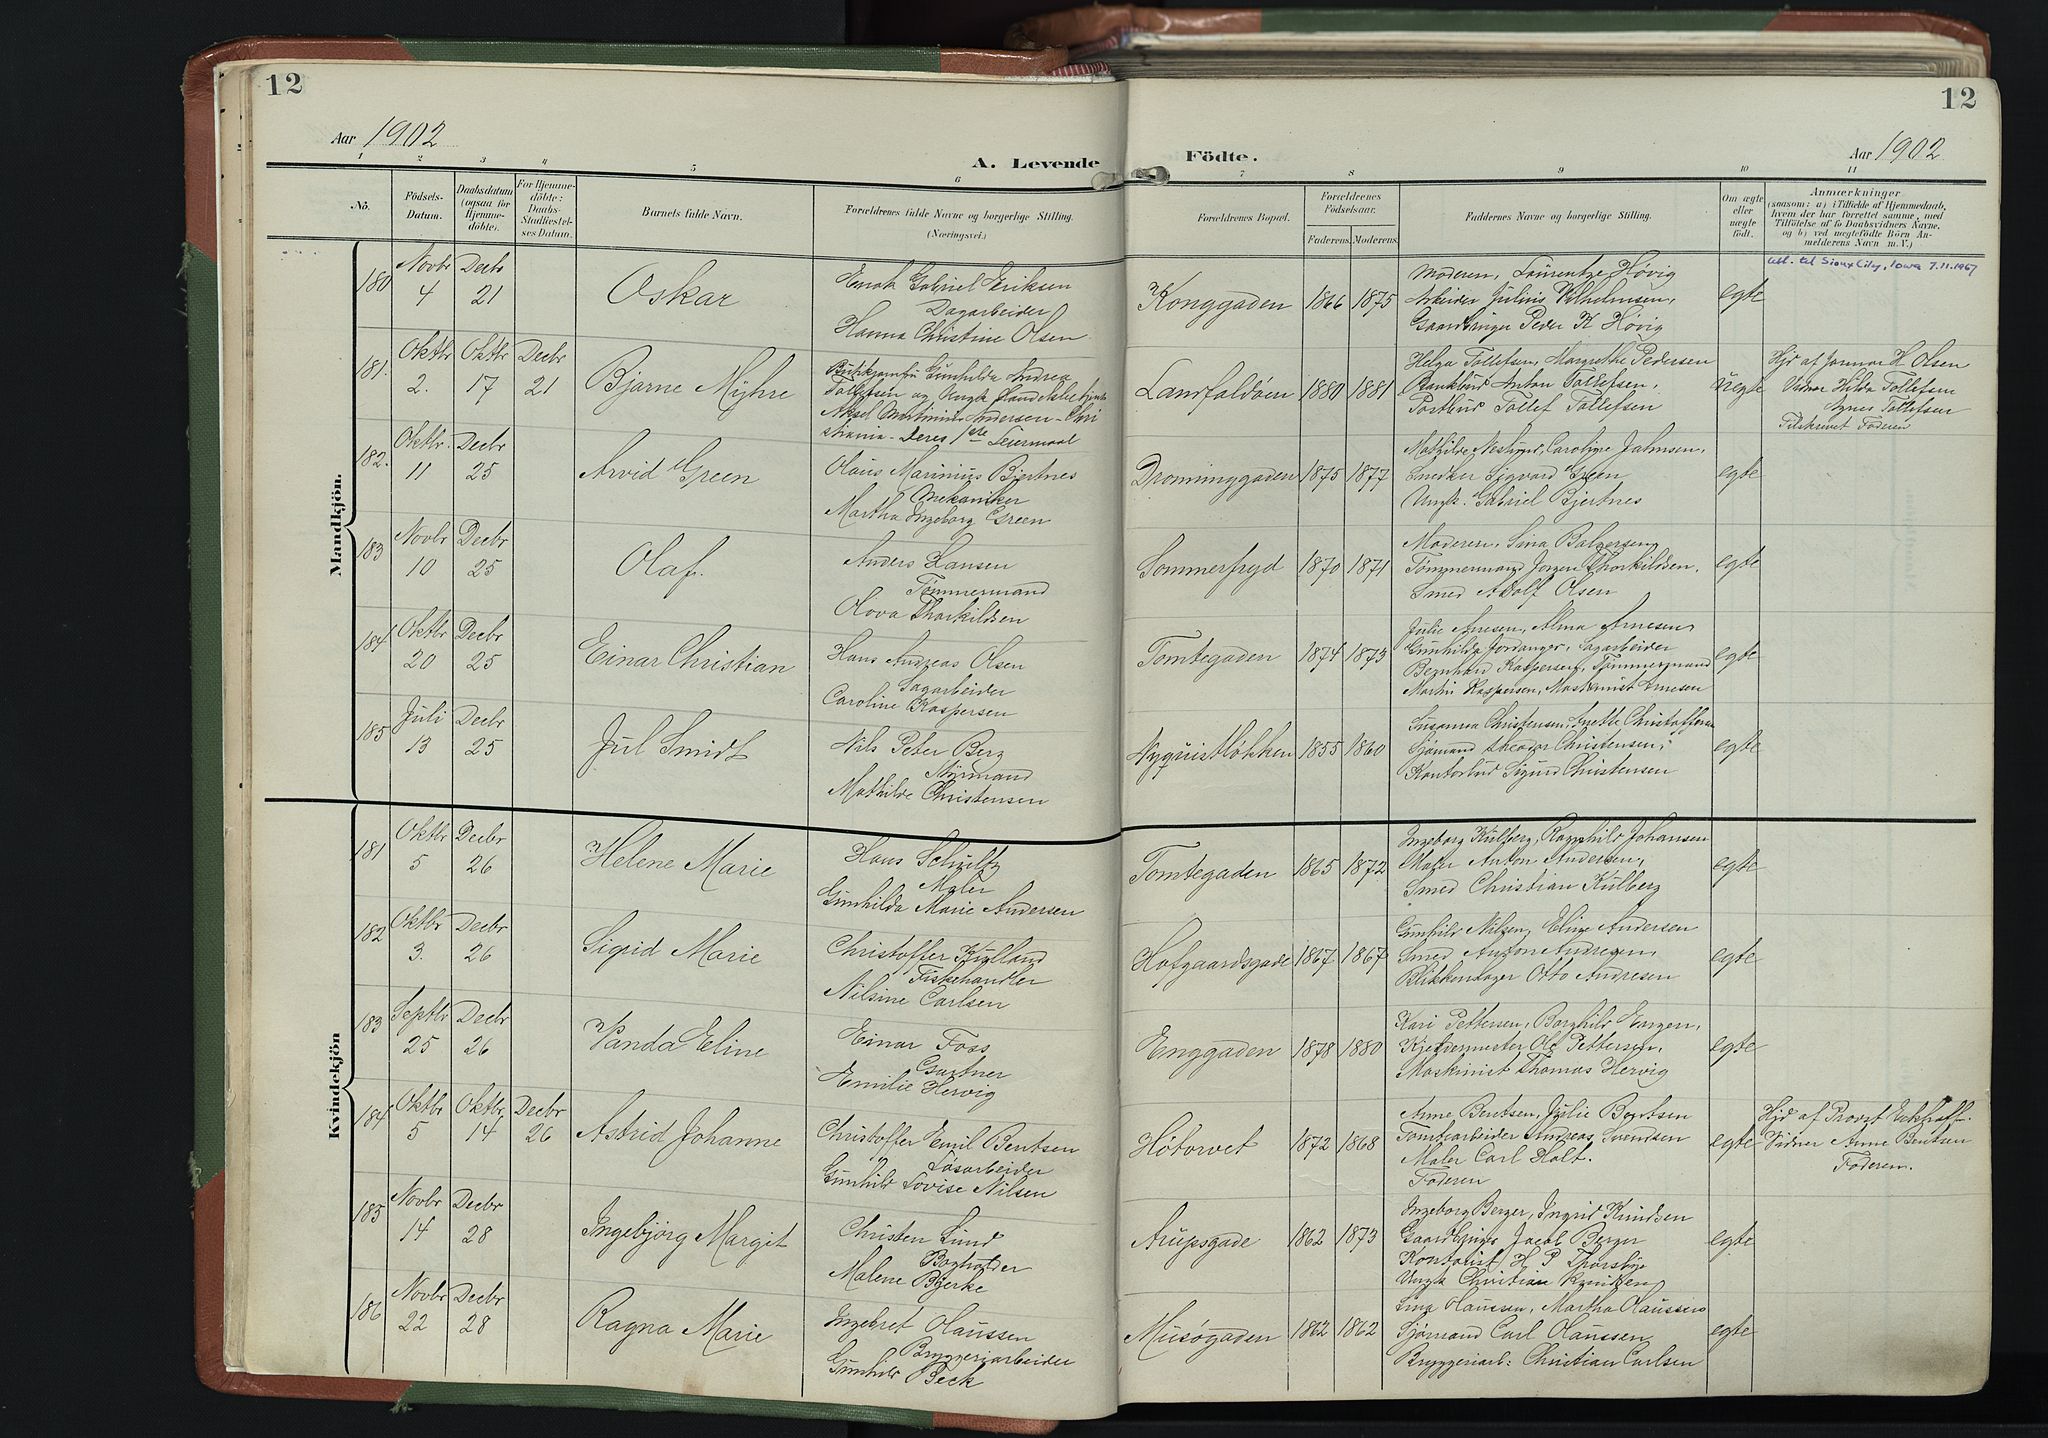 12
12
Aar 1902
Aar 1902
A. Levende Födte.
1 2 3 4 5 6 7 8 9 10 11
No.
Födsels-Datum.
Daabsdatum (ogsaa for Hjemme-döbte).
For Hjemme-döbte: Daabs-Stadfæstel-ses Datum.
Barnets fulde Navn.
Forældrenes fulde Navne og borgerlige Stilling.
(Næringsvei.)
Forældrenes Bopæl.
Forældrenes Födselsaar.
Faderens. Moderens.
Faddernes Navne og borgerlige Stilling.
Om ægte eller uægte födt.
Anmærkninger
(saasom: a) i Tilfælde af Hjemmedaab, hvem der har forrettet samme, med Tilföielse af to Daabsvidners Navne, og b) ved uægtefödte Börn An-melderens Navn m. V.)
Mandkjön.
180 Novbr 4 Decbr 21
Oskar
Enok Gabriel Eriksen
Dagarbeider
Hanna Christine Olsen
Konggaden 1866 1875
Moderen, Laurentze Høvig
Arbeider Julius Vilhelmsen,
Gaardbruger Peder K Høvig
egte
utl. til Sioux City, Iowa 7.11.1967
181. Oktbr 2. Oktbr 17 Decbr 21
Bjarne Myhre
Gunhilda Andrea
Tollefsen og Ungk
Aksel Martinius Andersen - Chri
stiania - Deres 1ste Leiermaal
Landfaldøen 1880 1881
Helga Tollefsen, Margrethe Pedersen
Bankbud Anton Tollefsen,
Postbud Tollef Tollefsen
uegte
Hjd af Jormor H Olsen
Vidner Hilda Tollefsen
Agnes Tollefsen
Tilskrevet Faderen
182. Oktbr. 11 Decbr 25
Arvid Green
Olaus Marinius Bjertnes
Mekaniker
Martha Ingeborg Green
Dronninggaden 1875 1877
Mathilde Caroline Jahnsen,
Snedker Sigvard Green
Ungk. Gabriel Bjertnes
egte
183 Novbr 10 Decbr 25
Olaf.
Anders Hansen
Tømmermand
Olova Thorkildsen
Sommerfryd 1870 1871
Moderen, Lina Balgersen,
Tømmermand Jørgen Thorkildsen,
Smed Adolf Olsen
egte
184 Oktbr 20 Decbr 25
Einar Christian
Hans Andreas Olsen
Sagarbeider
Caroline Kaspersen
Tomtegaden 1874 1873
Julie Arnesen, Alma Arnesen,
Gunhilda Jordanger, Sagarbeider
Bernhard Kaspersen, Tømmermand
Martin Kaspersen, Maskinist Arnesen
egte
185 Juli 13 Decbr 25
Jul Smidt
Nils Peter Berg
Sjømand
Mathilde Christensen
Nyquistløkken 1855 1860
Susanna Christensen, Anette Christoffersen
Sjømand Theodor Christensen,
Kontorbud Sigurd Christensen
egte
Kvindekjön
181 Oktbr 5 Decbr 26
Helene Marie
Hans Schultz
Maler
Gunhilda Marie Andersen
Tomtegaden 1865 1872
Ingeborg Kulberg, Ragnhild Johansen
Maler Anton Andersen,
Smed Christian Kulberg
egte
182 Oktbr 3. Decbr 26
Sigrid Marie
Christoffer Kulland
Fiskehandler
Nilsine Carlsen
Hofgaardsgade 1867 1867
Gunhild Nilsen, Eline Andersen
Smed Anton Andresen,
Blikkenslager Otto Andresen
egte
183 Septbr 25 Decbr 26
Vanda Eline
Einar Foss
Gartner
Emilie Hervig
Enggaden 1878 1880
Kari Pettersen, Borghild Jørgen,
Kjeldermester Ole Pettersen,
Maskinist Thomas Hervig
egte
184 Oktbr 5 Oktbr 14 Decbr 26
Astrid Johanne
Christoffer Emil Bentsen
Løsarbeider
Gunhild Lovise Nilsen
Høtorvet 1872 1868
Anne Bentsen, Julie Bentsen
Tomtearbeider Andreas Svendsen
Maler Carl Holt.
Faderen
egte
Hjd af Provst Eckhoff
Vidner Anne Bentsen
Faderen.
185 Novbr 14 Decbr 28
Ingebjørg Margit
Christen Lund
Bogholder
Malene Bjerke
Arupsgade 1862 1873
Ingeborg Berger, Ingrid Knudsen
Gaardbruger Jacob Berger
Kontorist H P Thorsby
Ungk Christian Knutzen
egte
186 Novbr 22 Decbr 28
Ragna Marie
Ingebret Olaussen
Bryggeriarbeider
Gunhild Beck
Musøgaden 1862 1862
Lina Olaussen, Martha Olaussen
Sjømand Carl Olaussen,
Bryggeriarb: Christian Carlsen
egte